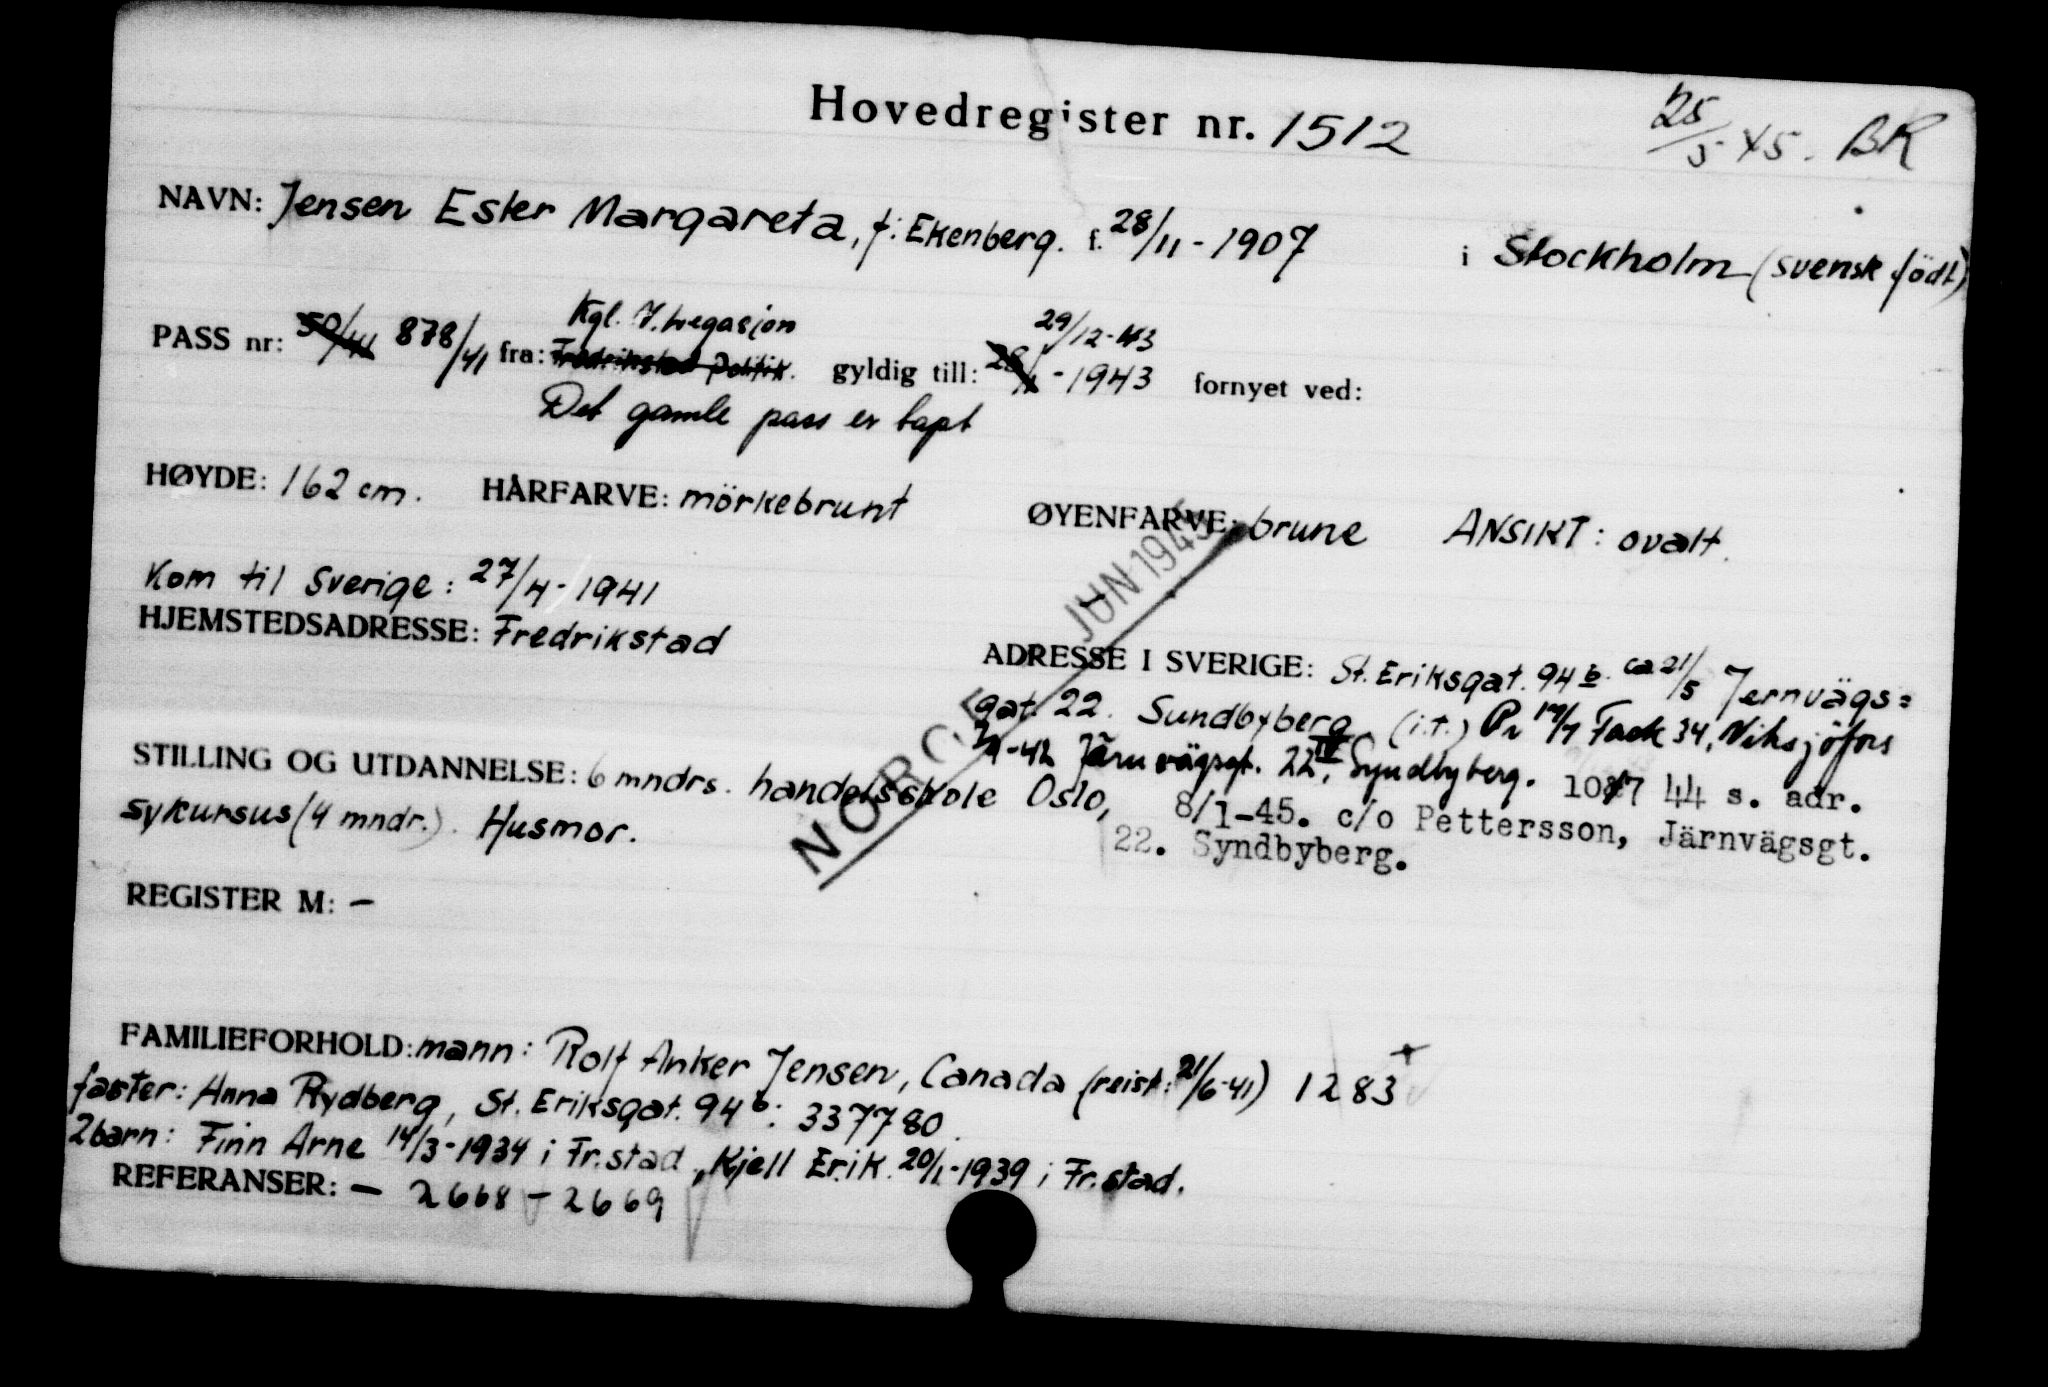 Hovedregister nr. 1512
25/5 45. BR
NAVN: Jensen Ester Margareta, f: Ekenberg. f. 28/11 - 1907 i Stockholm (svensk födt)
Kgl. N. Legasjon 29/12-43
PASS nr: 50/41 878/41 fra: Fredrikstad politik. gyldig till: - 1943 fornyet ved:
Det gamle pass er tapt
HØYDE: 162 cm. HÅRFARVE: mörkebrunt ØYENFARVE: brune ANSIKT: ovalt.
JUN 1945
Kom til Sverige: 27/4 - 1941
HJEMSTEDSADRESSE: Fredrikstad
ADRESSE I SVERIGE: St. Eriksgat. 94 b. ca 21/5 Jernvägs=
gat. 22. Sundbyberg. (i.t.) Pr 19/7 Tack 34, Viksjöfors
Järnvägsgt. 22 IV, Syndbyberg. 44 s. adr.
8/1-45. c/o Pettersson, Järnvägsgt.
22. Syndbyberg.
NORGE
STILLING OG UTDANNELSE: 6 mndrs. handelsskole Oslo,
sykursus (4 mndr.). Husmor.
REGISTER M: -
FAMILIEFORHOLD: mann: Rolf Anker Jensen, Canada (reist: 21/6-41) 1283 +
faster: Anna Rydberg, St. Eriksgat. 94 b: 337780.
2 barn: Finn Arne 14/3-1934 i Fr.stad, Kjell Erik. 20/1-1939 i Fr.stad.
REFERANSER: - 2668 - 2669